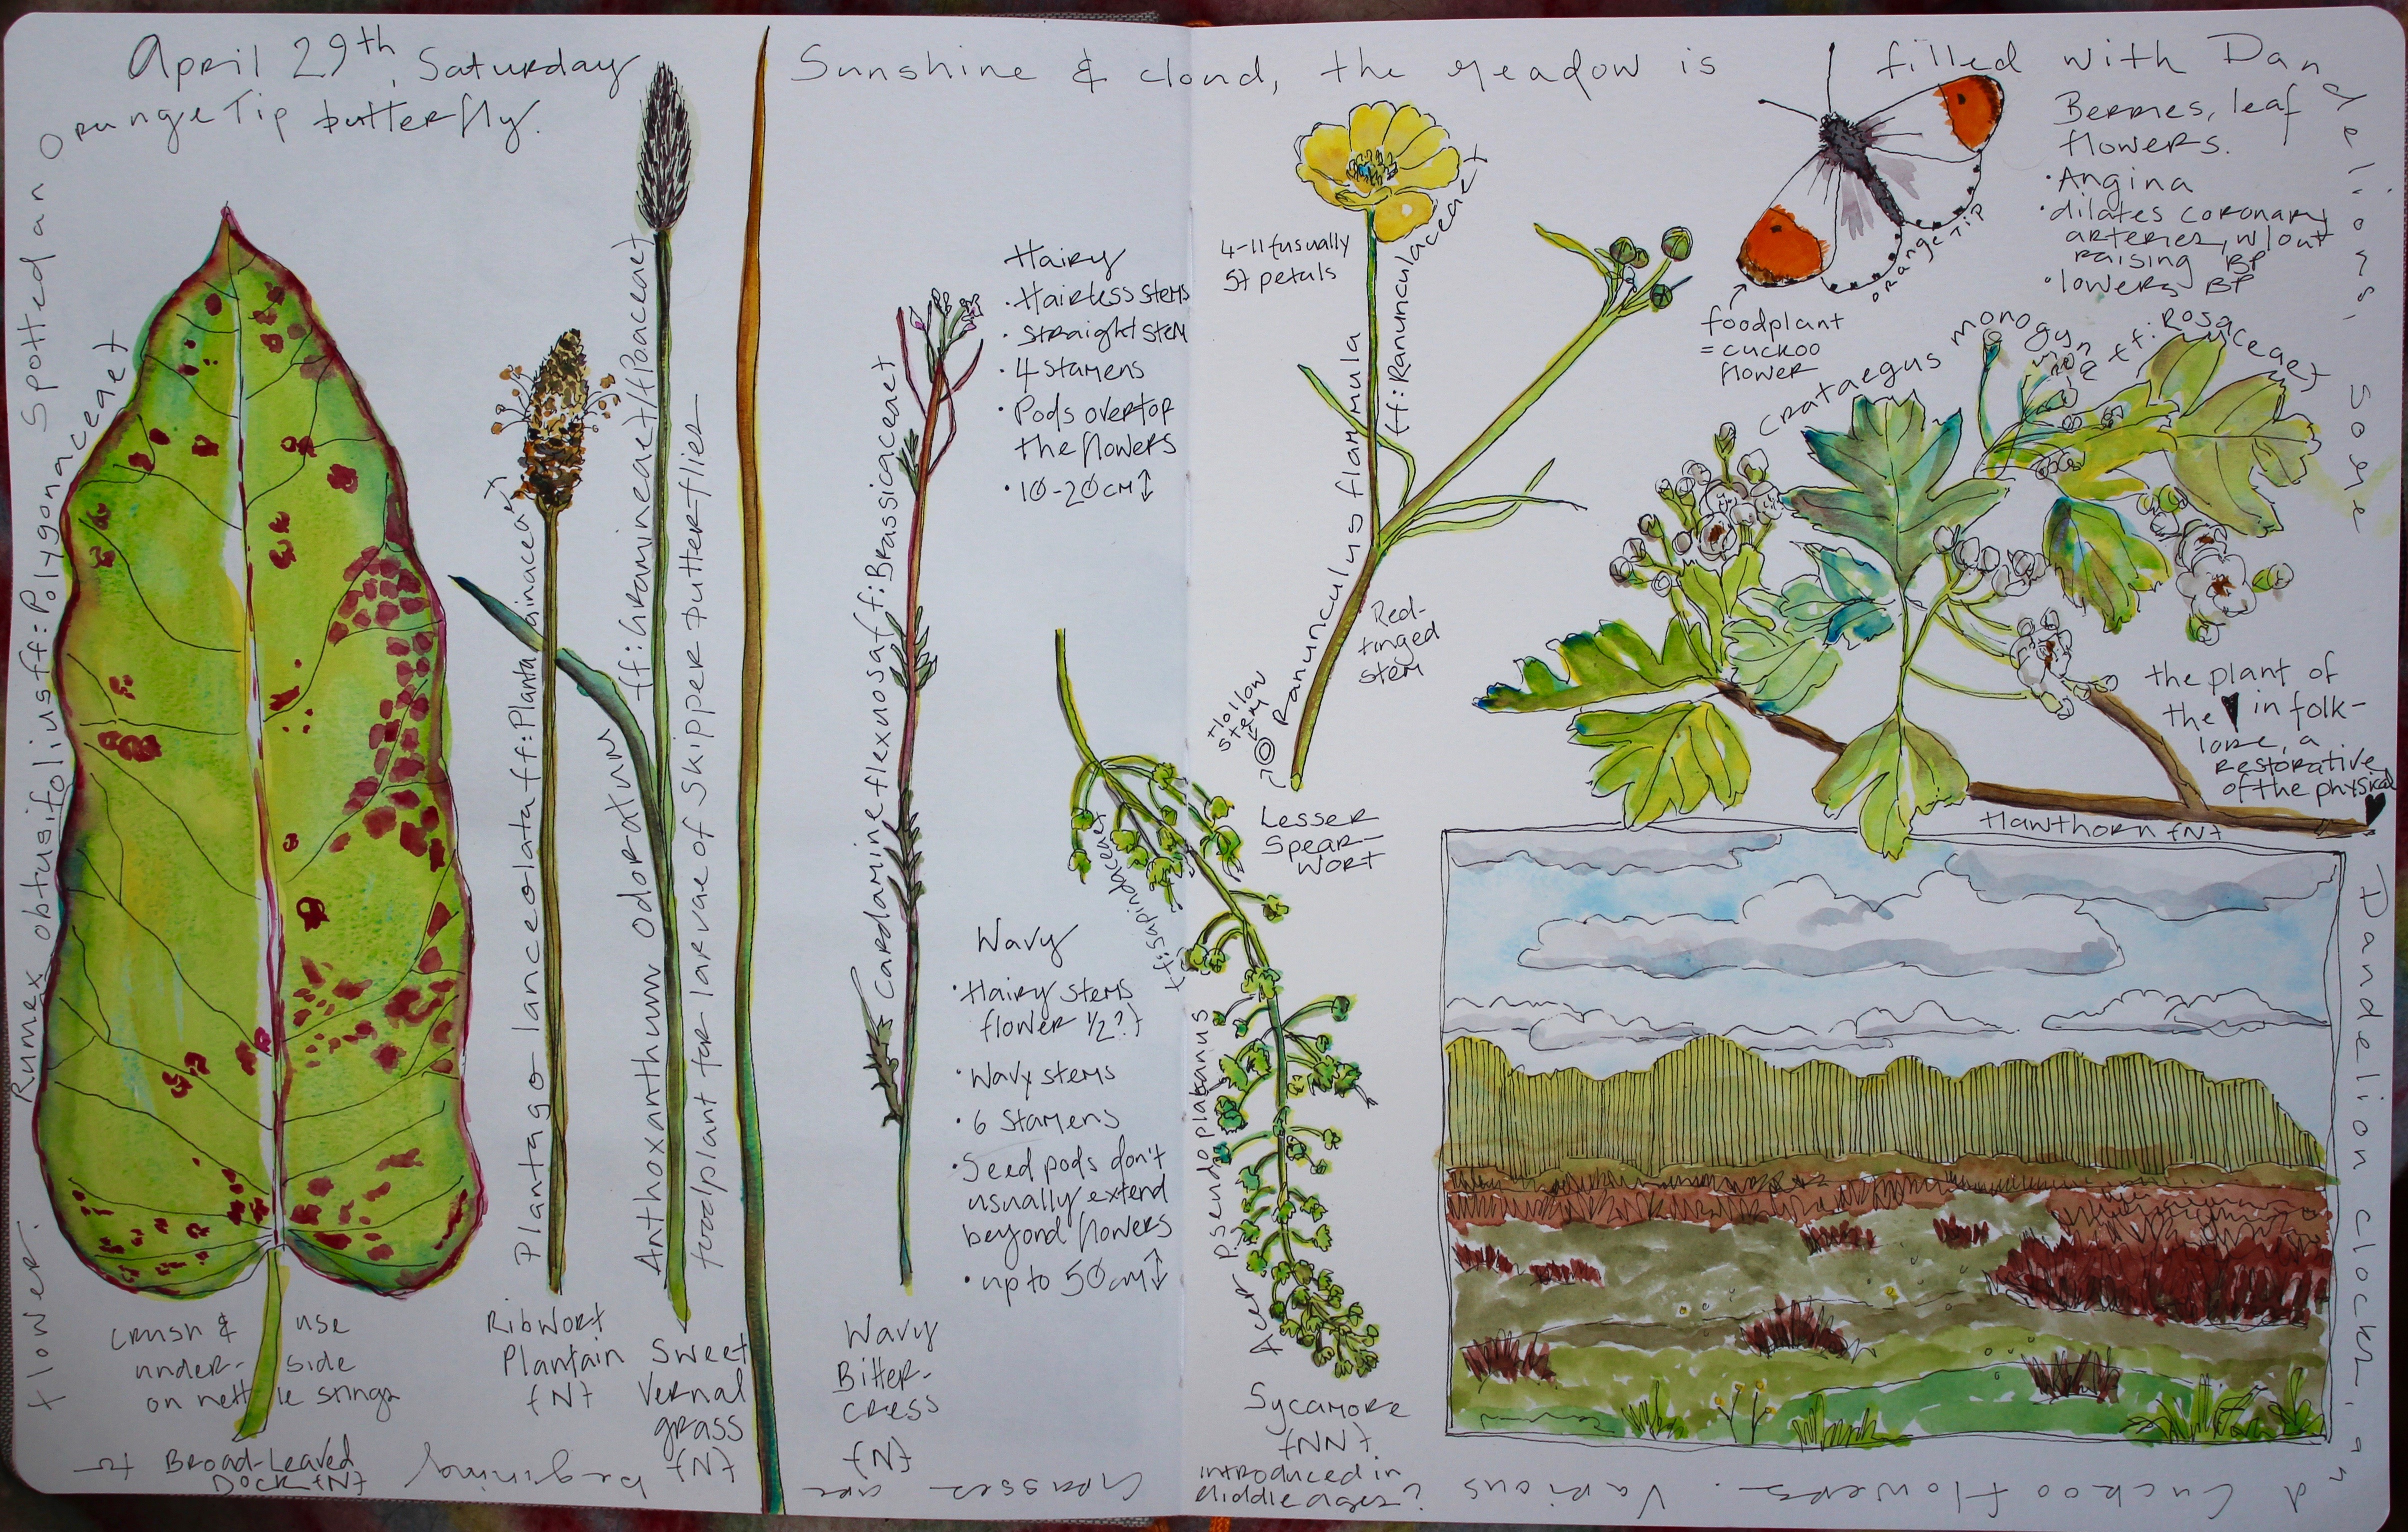 April 29th, Saturday
Sunshine & cloud, the meadow is filled with Dandelions, some
Dandelion clocks, and Cuckoo flowers. Various
Grasses are beginning to
flower. Spotted an
Orange Tip butterfly.
Rumex obtusifolius {f: Polygonaceae}
crush & use
under- side
on nettle stings
Broad-Leaved
Dock {N}
Plantago lanceolata {f: Plantaginaceae}
Ribwort
Plantain
{N}
Anthoxanthum odoratum {f: Gramineae/Poaceae}
foodplant for larvae of skipper butterflies
Sweet
Vernal
grass
{N}
Cardamine flexuosa {f: Brassicaceae}
Wavy
Bitter-
cress
{N}
Hairy
· Hairless stems
· straight stem
· 4 stamens
· Pods overtop
the flowers
· 10-20cm↕
Wavy
· Hairy stems
flower 1/2?}
· Wavy stems
· 6 stamens
· Seed pods don't
usually extend
beyond flowers
· up to 50cm↕
Acer pseudoplatanus
{f: sapindaceae}
Sycamore
{NN}
introduced in
Middle ages?
4-11 {usually
5} petals
Ranunculus flammula
{f: Ranunculaceae}
Red-
tinged
stem
Hollow
stem
Lesser
Spear-
wort
orange tip
foodplant
= cuckoo
flower
Berries, leaf
flowers.
· Angina
· dilates coronary
arteries, w/out
raising BP
· lowers BP
Crataegus monogyna {f: Rosaceae}
the plant of
the ♥ in folk-
lore, a
restorative
of the physical
♥
Hawthorn {N}